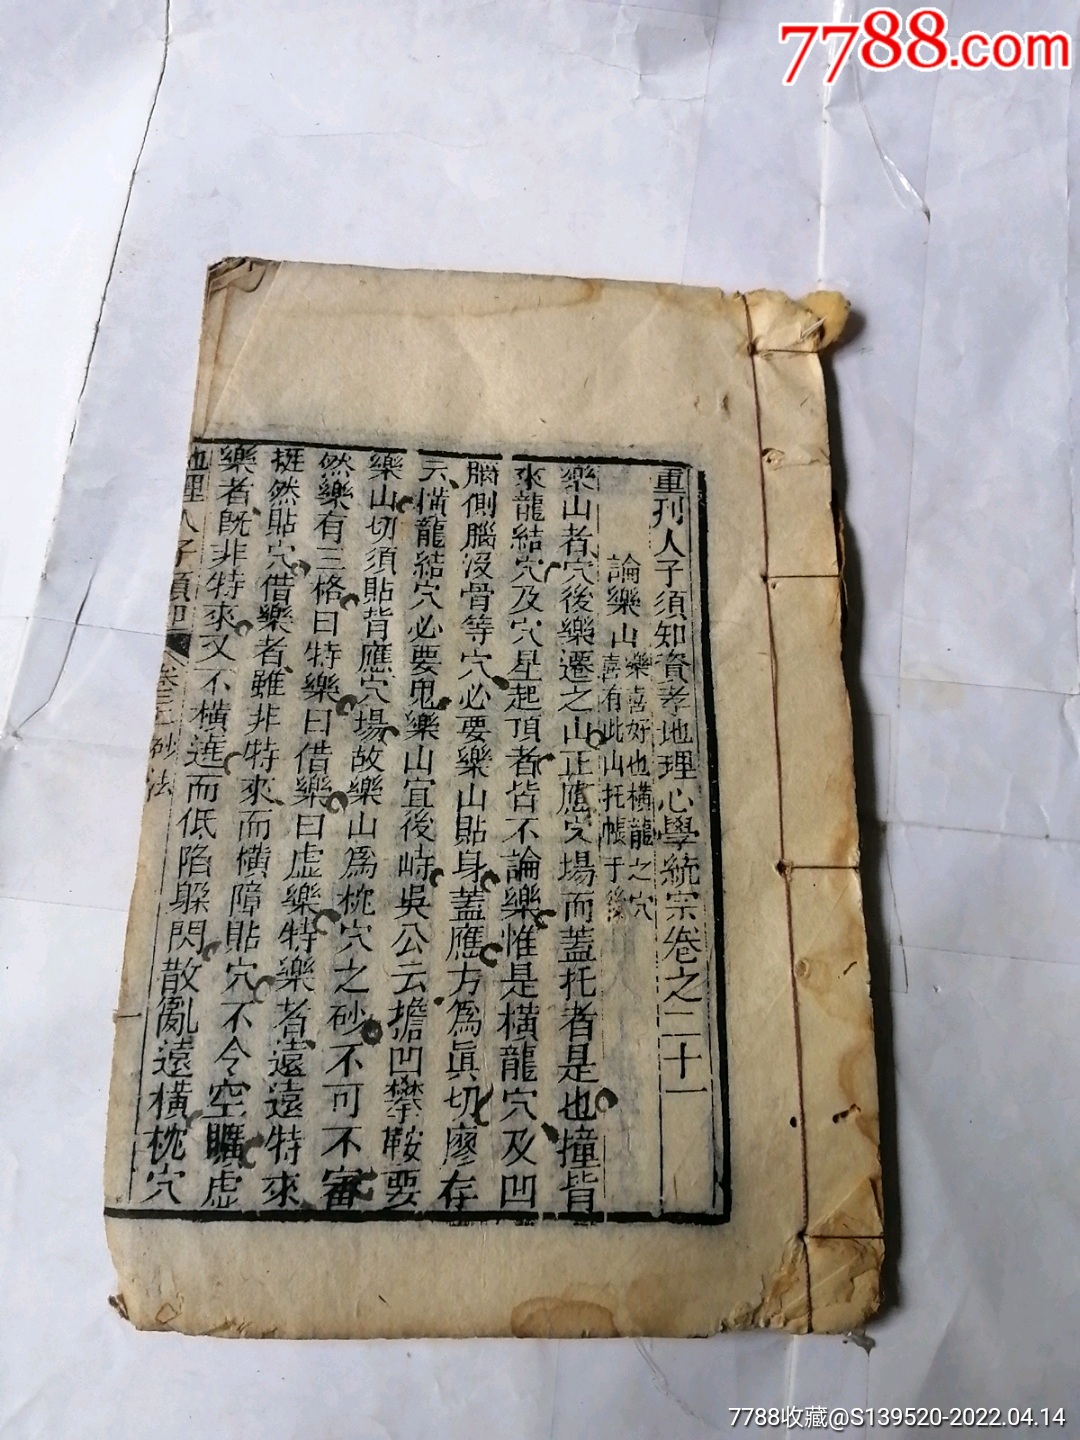 7788.com
重刊人子須知資孝地理心學統宗卷之二十一
論樂山
樂喜好也橫龍之穴
喜有此山托帳于後
樂山者穴後樂遷之山正應穴場而蓋托者是也撞背
來龍結穴及穴星起頂者皆不論樂惟是橫龍穴及凹
腦側腦沒骨等穴必要樂山貼身蓋應方為眞切廖存
云橫龍結穴必要鬼樂山宜後峙吳公云擔凹攀鞍要
樂山切須貼背應穴場故樂山為枕穴之砂不可不審
然樂有三格曰特樂曰借樂曰虛樂特樂者遠遠特來
挺然貼穴借樂者雖非特來而橫障貼穴不令空曠虛
樂者既非特來又不橫進而低陷躲閃散亂遠橫枕穴
地理人子須知 卷三 砂法
7788收藏@S139520-2022.04.14